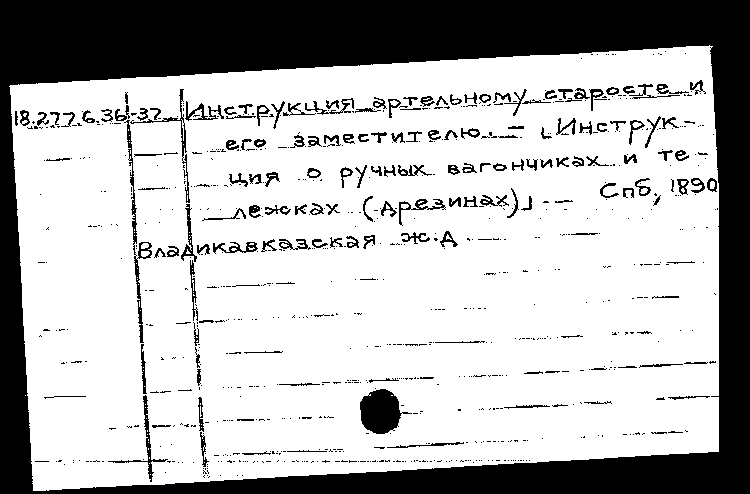 18.277.6.36-37 Инструкция артельному старосте и
его заместителю. - [Инструк-
ция о ручных вагончиках и те-
лежках (дрезинах)] -- Спб, 1890
Владикавказская ж.д